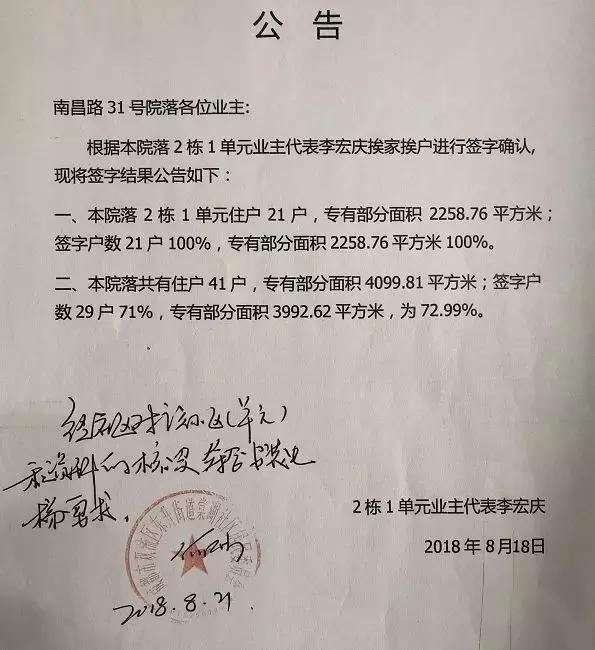 公 告
南昌路 31 号院落各位业主:
根据本院落 2 栋 1 单元业主代表李宏庆挨家挨户进行签字确认,
现将签字结果公告如下：
一、本院落 2 栋 1 单元住户 21 户，专有部分面积 2258.76 平方米；
签字户数 21 户 100%，专有部分面积 2258.76 平方米 100%。
二、本院落共有住户 41 户，专有部分面积 4099.81 平方米；签字户
数 29 户 71%，专有部分面积 3992.62 平方米，为 72.99%。
经社区对该小区(单元)
资料的核实 符合安装电
梯要求.
2 栋 1 单元业主代表李宏庆
2018 年 8 月18日
2018.8.21.